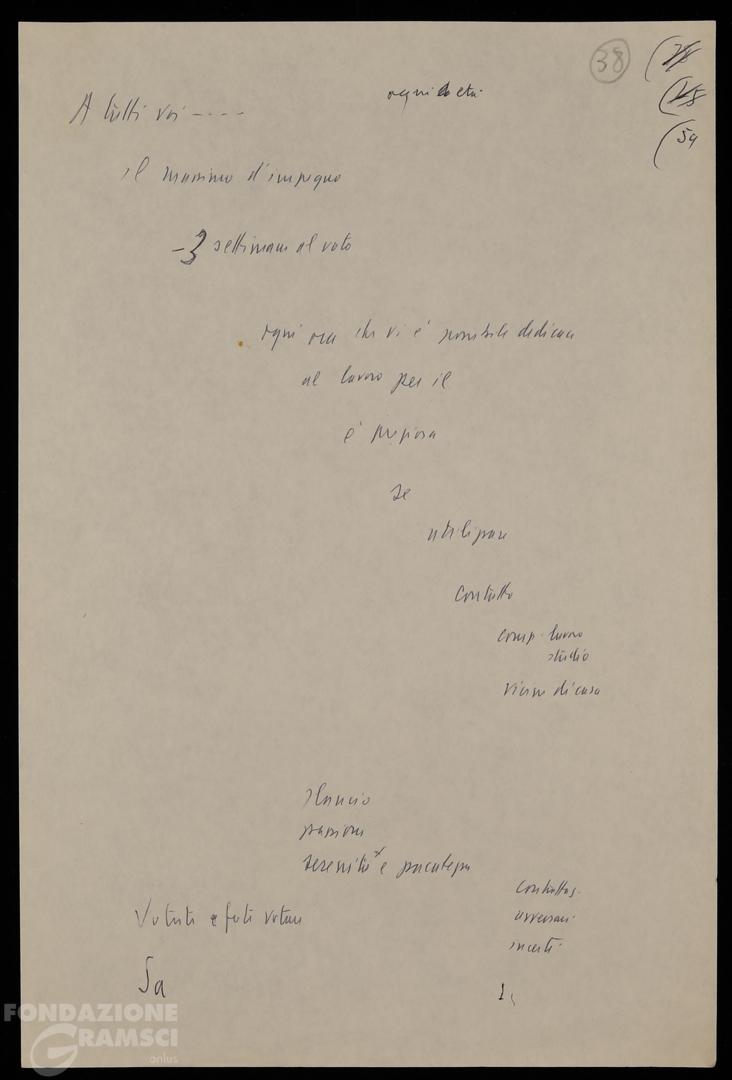 38
(28
(25
(59
ogni età.
A tutti voi ----
il massimo d'impegno
-3 settimane al voto
ogni ora che vi è possibile dedicare
al lavoro per il
è preziosa
se
utilizzare
contatto
comp. lavoro
studio
vicini di casa
slancio
passione
serenità e pacatezza
contatto
avversari
incerti.
Votate e fate votare
Sa
1
FONDAZIONE
GRAMSCI
onlus